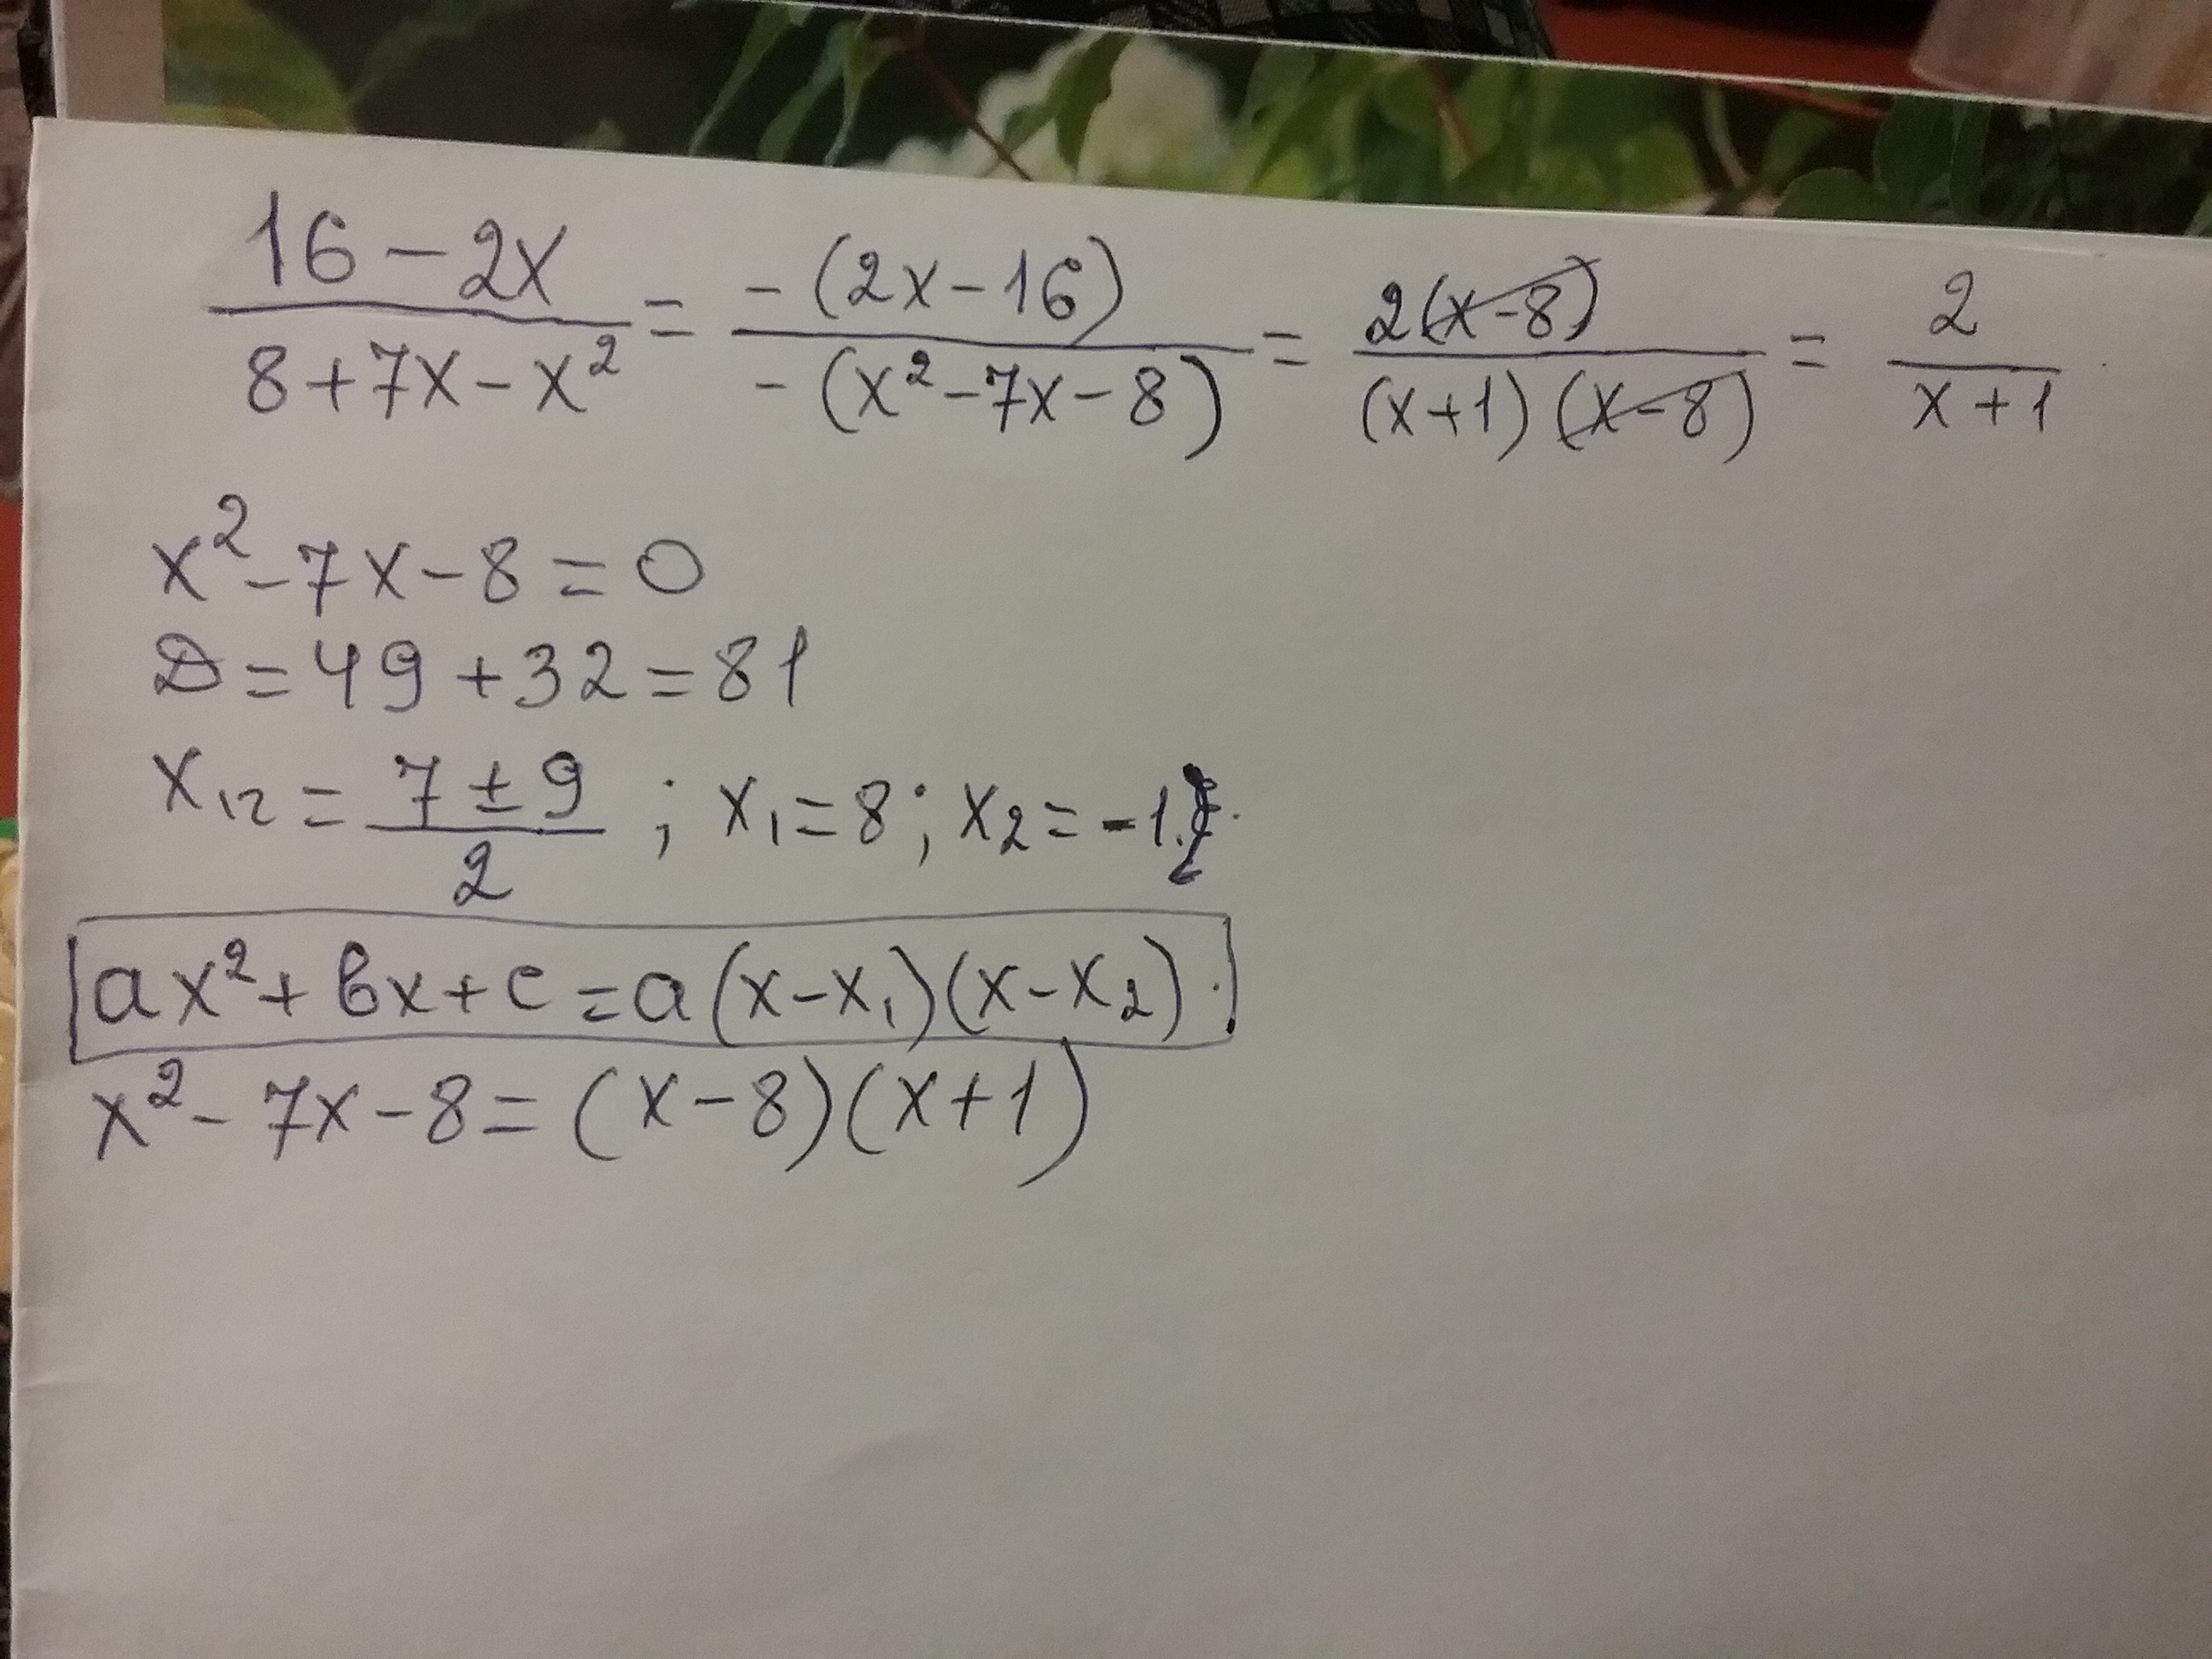 (16-2x)/(8+7x-x²) = (-(2x-16))/(-(x²-7x-8)) = (2(x-8))/((x+1)(x-8)) = 2/(x+1).
x²-7x-8=0
D=49+32=81
x₁₂ = (7±9)/2 ; x₁=8; x₂=-1.
ax²+bx+c=a(x-x₁)(x-x₂).
x²-7x-8=(x-8)(x+1)